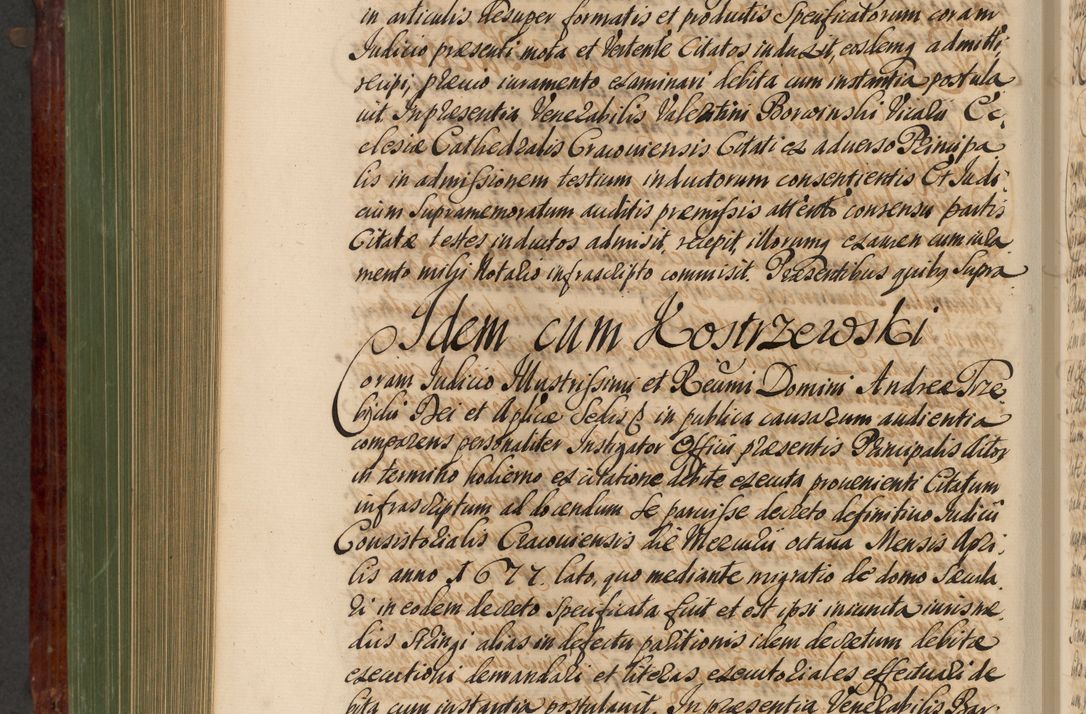 in articulis desuper formatis et productis Specificatorum coram
Judicio præsenti mota et Vertente Citatos induxit, eosdemq admitti,
recipi, prævio iuramento examinari debita cum instantia postula
uit In præsentia Venerabilis Valentini Borowinski Vicarii Ec,
clesiæ Cathedralis Cracouiensis Citati ex aduerso Principa
lis in admissionem testium inductorum consentientis Et Judi
cium Supramemoratum auditis præmissis attento consensu partis
Citatæ testes inductos admisit, recepit, illorumq examen cum iura
mento mihi Notario infrascripto commisit. Præsentibus quibq Supra
Idem cum Kostrzewski
Coram Judicio Illustrissimi et Reũmi Domini Andreæ Trze
bicki Dei et Aplicæ Sedis in publica causarum audientia
comparens personaliter Instigator Officii præsentis Principalis Actor
in termino hodierno ex citatione debite executa prouenienti Citatum
infrascriptum ad docendum se paruisse decreto definitiuo Judicii
Consistorialis Cracouiensis die Mercurii octaua Mensis Apri,
lis anno 1677. lato, quo mediante migratio de domo Sæcula
ri in eodem decreto specificata fuit et est ipsi iniuncta iurisme,
diis stringi alias in defectu paritionis idem decretum debitæ
executioni demandari et literas executoriales effectuari de
bita cum instantia postulauit. In præsentia Venerabilis Bar